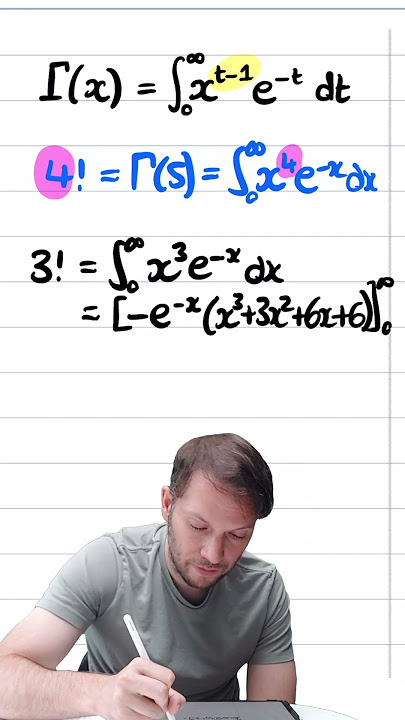 Γ(x) = ∫₀^∞ x^(t-1) e^(-t) dt
4! = Γ(5) = ∫₀^∞ x⁴ e^(-x) dx
3! = ∫₀^∞ x³ e^(-x) dx
= [-e^(-x) (x³+3x²+6x+6)]₀^∞